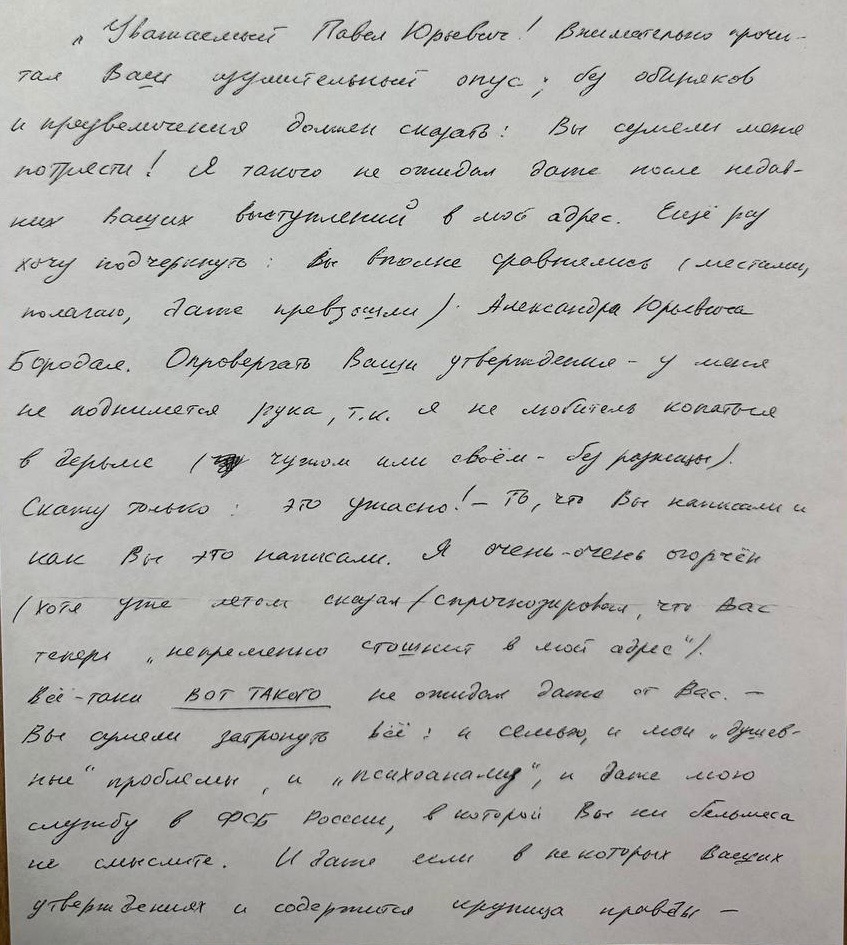 „Уважаемый Павел Юрьевич! Внимательно прочи-
тал Ваш изумительный опус; без обиняков
и преувеличения должен сказать: Вы сумели меня
потрясти! Я такого не ожидал даже после недав-
них Ваших выступлений в мой адрес. Ещё раз
хочу подчеркнуть: Вы вполне сравнялись (местами,
полагаю, даже превзошли) Александра Юрьевича
Бородая. Опровергать Ваши утверждения - у меня
не поднимется рука, т.к. я не любитель копаться
в дерьме (чужом или своём - без разницы).
Скажу только: это ужасно! - То, что Вы написали и
как Вы это написали. Я очень-очень огорчён
(хотя уже летом сказал/спрогнозировал, что Вас
теперь „непременно стошнит в мой адрес").
Всё-таки ВОТ ТАКОГО не ожидал даже от Вас. -
Вы сумели затронуть всё: и семью, и мои „душев-
ные" проблемы, и „психоанализ", и даже мою
службу в ФСБ России, в которой Вы ни бельмеса
не смыслите. И даже если в некоторых Ваших
утверждениях и содержится крупица правды -